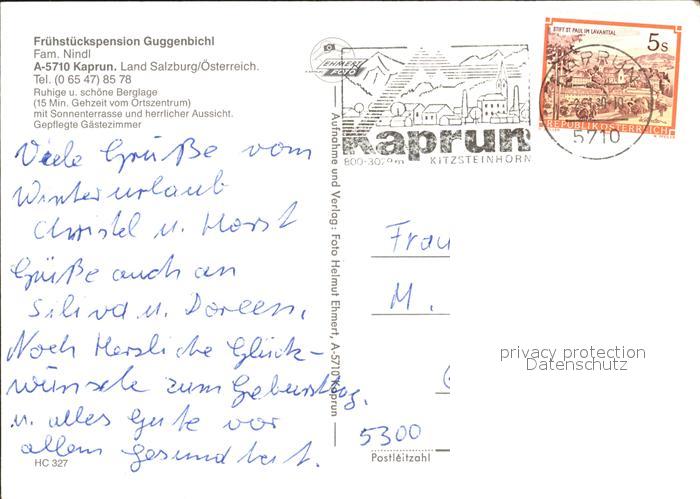 Frühstückspension Guggenbichl
Fam. Nindl
A-5710 Kaprun. Land Salzburg/Österreich.
Tel. (0 65 47) 85 78
Ruhige u. schöne Berglage
(15 Min. Gehzeit vom Ortszentrum)
mit Sonnenterrasse und herrlicher Aussicht.
Gepflegte Gästezimmer
Viele Grüße vom
Winterurlaub
Christel u. Horst
Grüße auch an
Silivá u. Doreen,
Noch Herzliche Glück-
wünsche zum Geburtstag.
u. alles Gute vor
allem Gesundheit.
HC 327
Aufnahme und Verlag: Foto Helmut Ehmert, A-5710 Kaprun
EHMERT
FOTO
Kaprun
800-3029m KITZSTEINHORN
STIFT ST. PAUL IM LAVANTTAL
5s
REPUBLIK ÖSTERREICH
KAPRUN
5710
Frau
M.
5300
Postleitzahl
privacy protection
Datenschutz